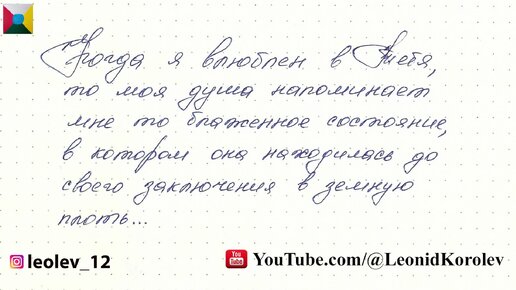 Когда я влюблен в Тебя,
то моя душа напоминает
мне то блаженное состояние,
в котором она находилась до
своего заключения в земную
плоть...
leolev_12
You Tube
YouTube.com/@LeonidKorolev